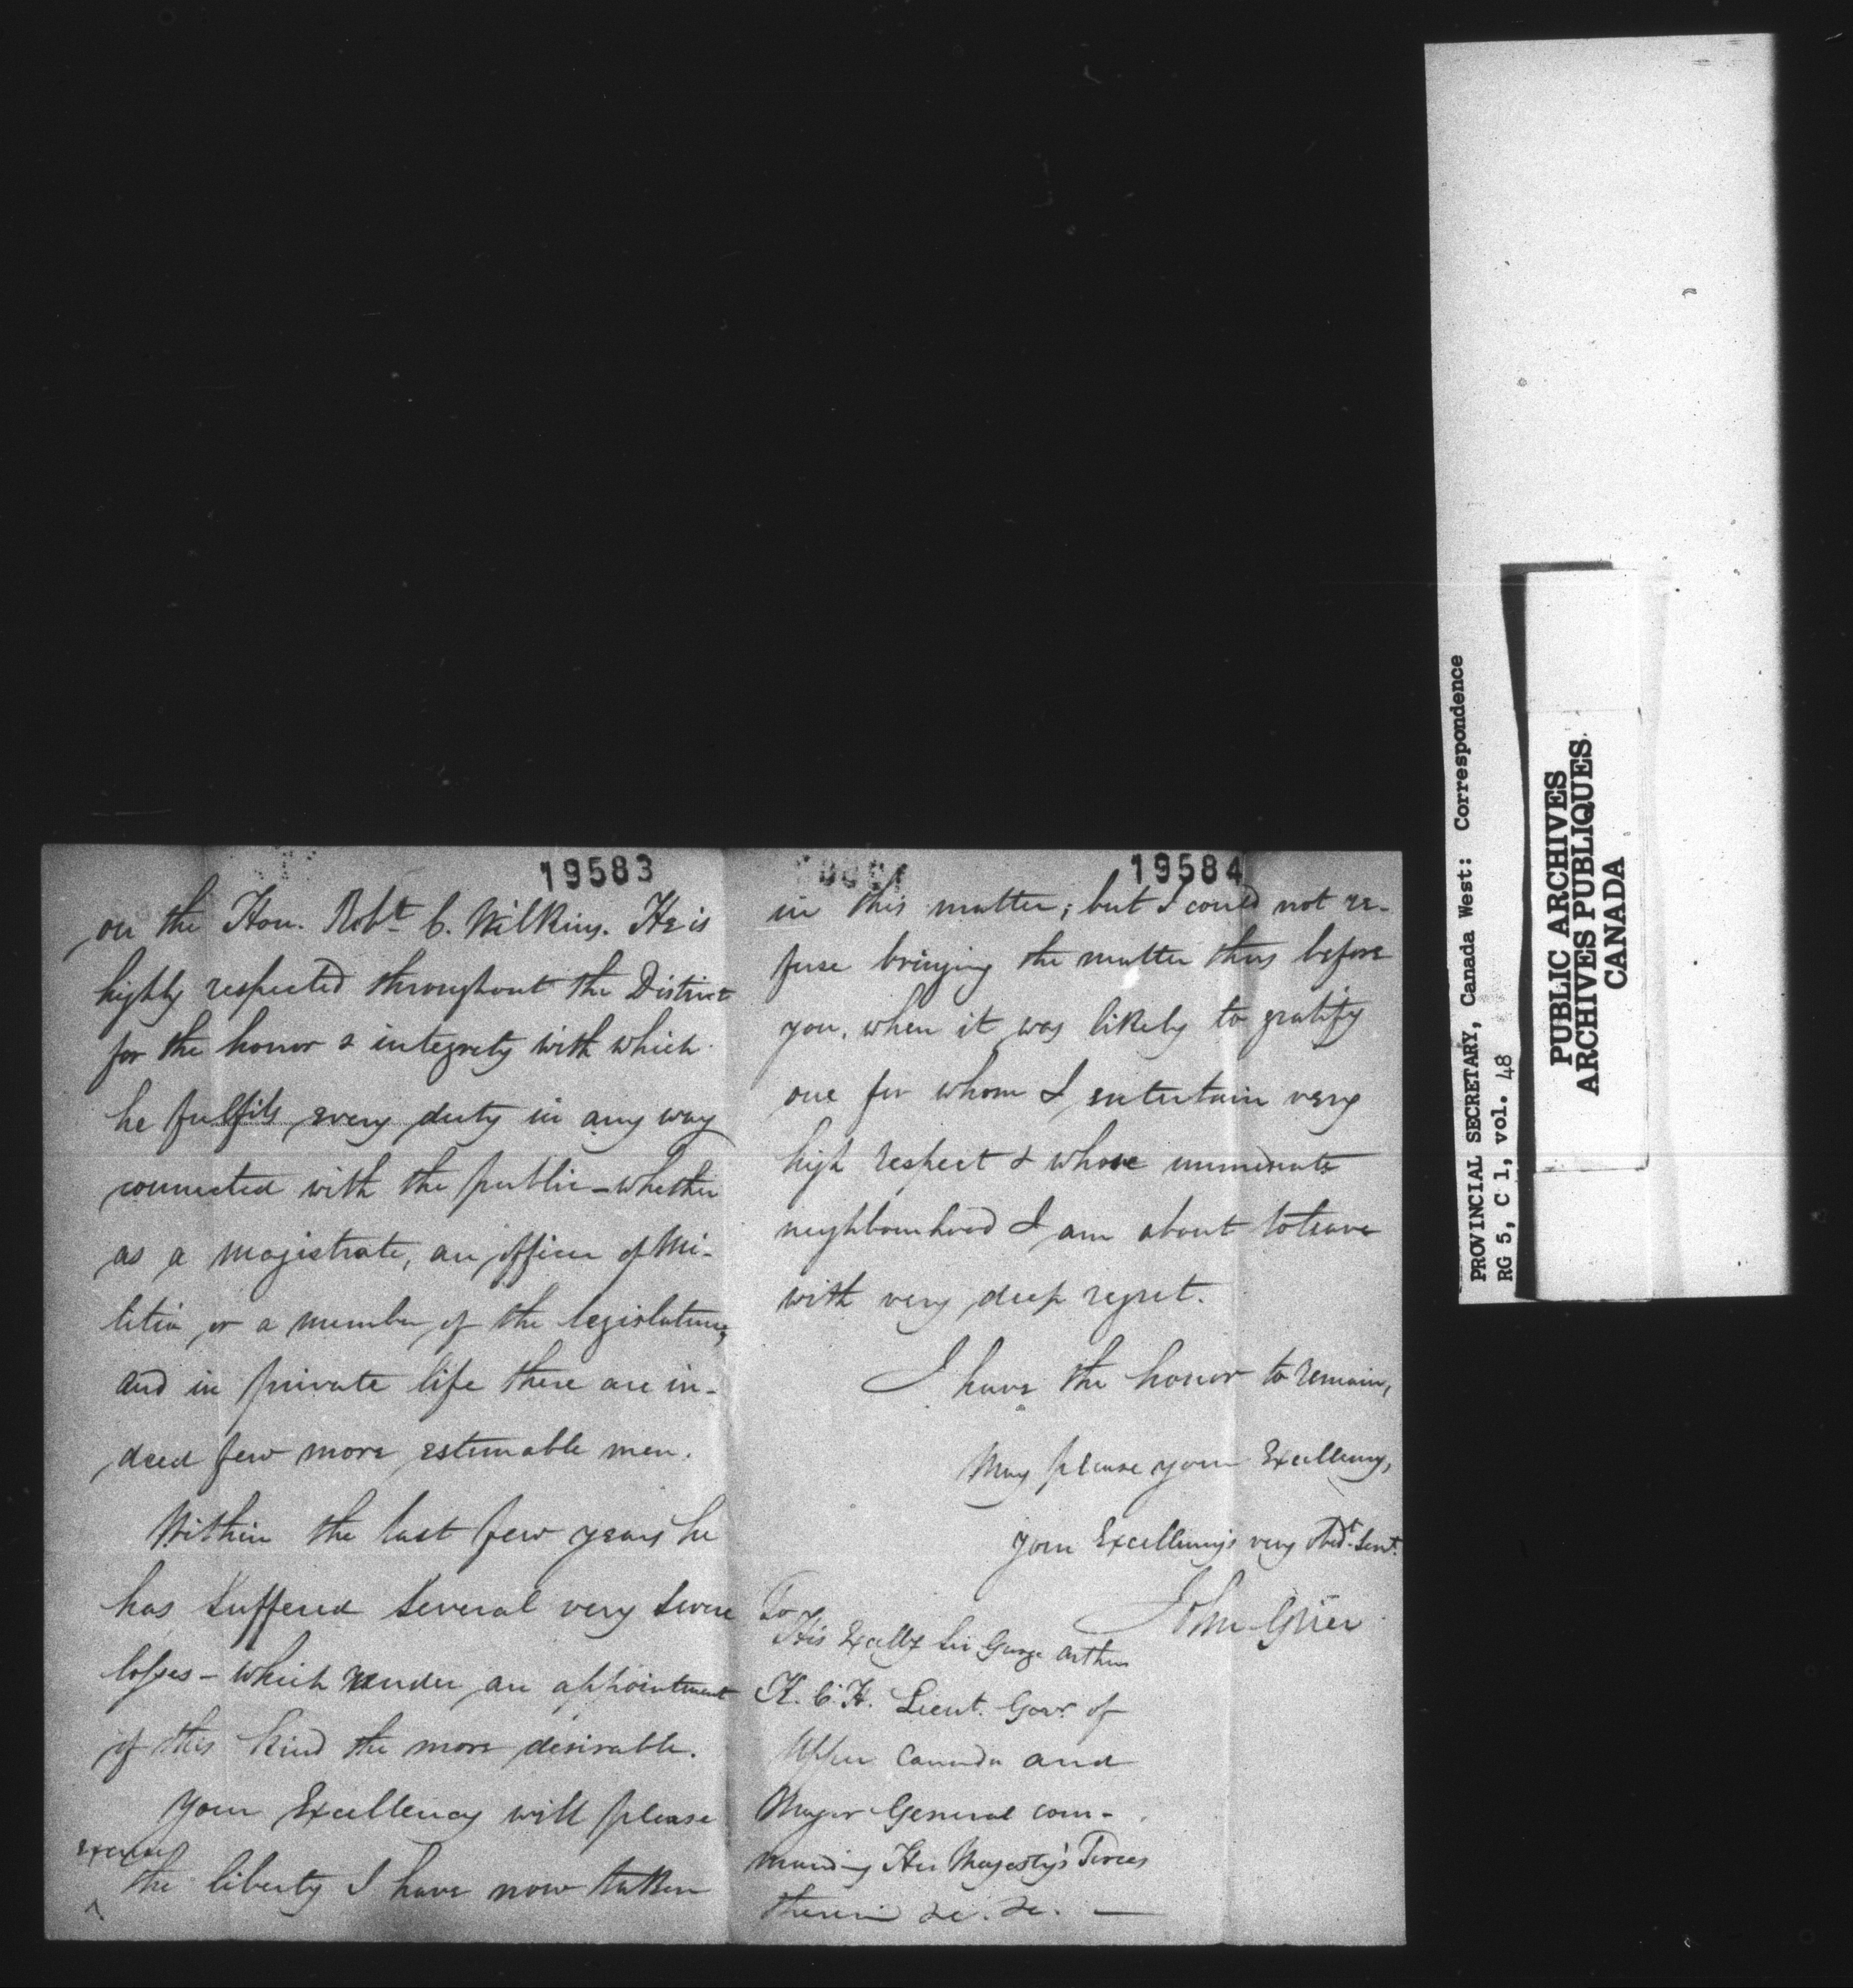 19583
on the Hon. Robt C. Wilkins. He is
highly respected throughout the District
for the honor & integrity with which
he fulfils every duty in any way
connected with the public - whether
as a magistrate, an officer of Mi-
litia or a member of the legislature,
and in private life there are in-
deed few more estimable men.
Within the last few years he
has suffered several very severe
losses - which render an appointment
of this kind the more desirable.
Your Excellency will please
excuse
^ the liberty I have now taken
19584
in this matter; but I could not re-
fuse bringing the matter thus before
you, when it was likely to gratify
one for whom I entertain very
high respect & whose immediate
neighbourhood I am about to leave
with very deep regret.
I have the honor to remain,
May please your Excellency,
Your Excellency's very Obedt. Servt.
John Grier
To
His Excelly Sir George Arthur
K. C. H. Lieut. Govr. of
Upper Canada and
Major General com-
manding Her Majesty's Forces
therein &c. &c. —
PROVINCIAL SECRETARY, Canada West: Correspondence
RG 5, C 1, vol. 48
PUBLIC ARCHIVES
ARCHIVES PUBLIQUES
CANADA